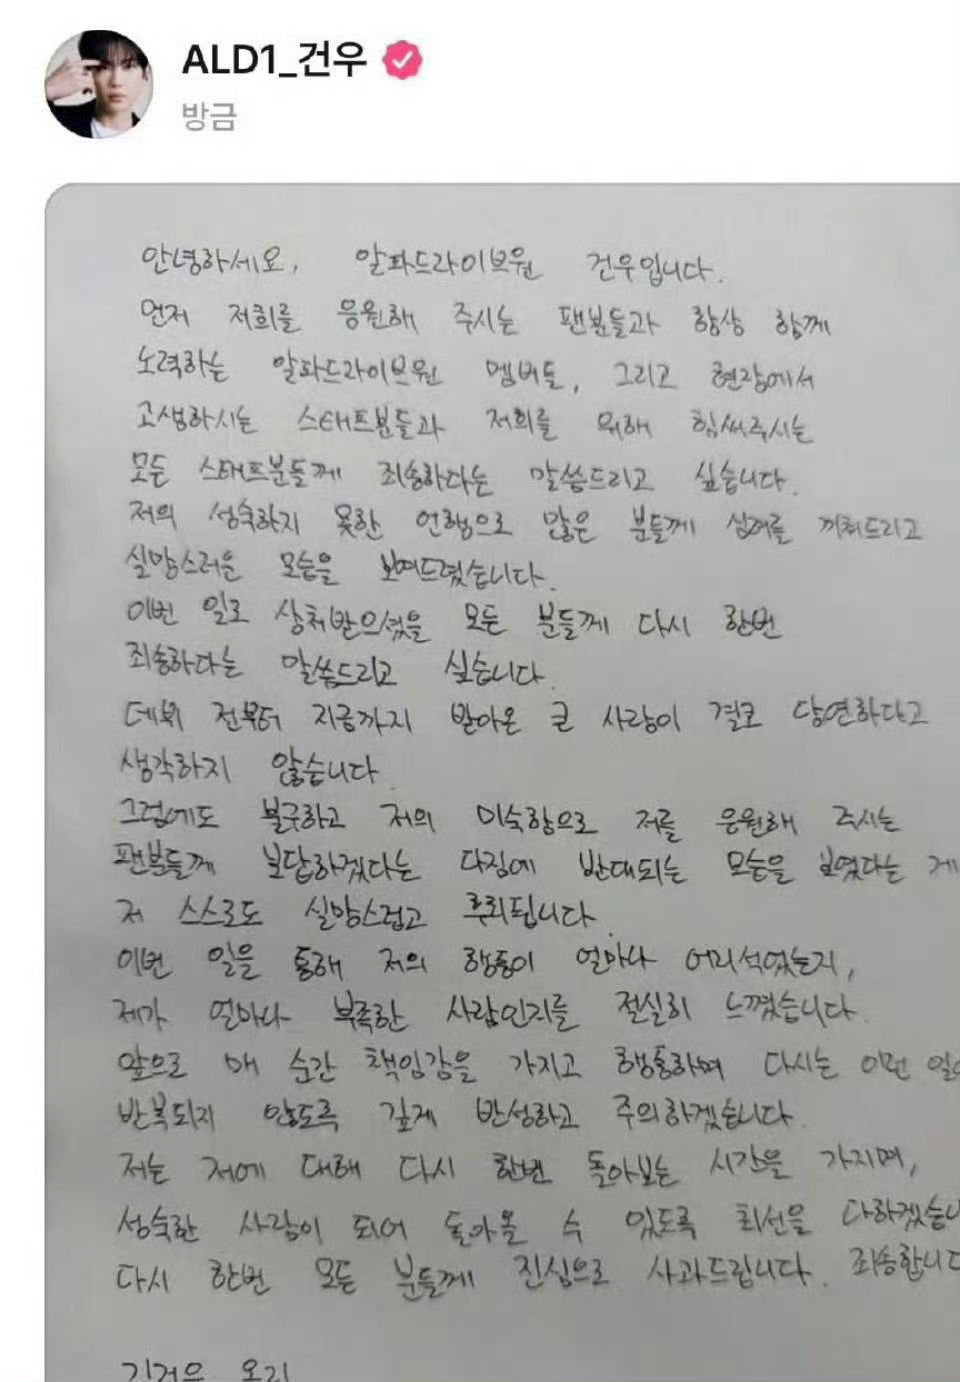 ALD1_건우
방금
안녕하세요, 알파드라이브원 건우입니다.
먼저 저희를 응원해 주시는 팬분들과 항상 함께
노력하는 알파드라이브원 멤버들, 그리고 현장에서
고생하시는 스태프분들과 저희를 위해 힘써주시는
모든 스태프분들께 죄송하다는 말씀드리고 싶습니다.
저의 성숙하지 못한 언행으로 많은 분들께 심려를 끼쳐드리고
실망스러운 모습을 보여드렸습니다.
이번 일로 상처받으셨을 모든 분들께 다시 한번
죄송하다는 말씀드리고 싶습니다.
데뷔 전부터 지금까지 받아온 큰 사랑이 결코 당연하다고
생각하지 않습니다.
그럼에도 불구하고 저의 미숙함으로 저를 응원해 주시는
팬분들께 보답하겠다는 다짐에 반대되는 모습을 보였다는 게
저 스스로도 실망스럽고 후회됩니다.
이번 일을 통해 저의 행동이 얼마나 어리석었는지,
제가 얼마나 부족한 사람인지를 절실히 느꼈습니다.
앞으로 매 순간 책임감을 가지고 행동하며 다시는 이런 일이
반복되지 않도록 깊게 반성하고 주의하겠습니다.
저는 저에 대해 다시 한번 돌아보는 시간을 가지며,
성숙한 사람이 되어 돌아올 수 있도록 최선을 다하겠습니
다시 한번 모든 분들께 진심으로 사과드립니다. 죄송합니다
김건우 올림